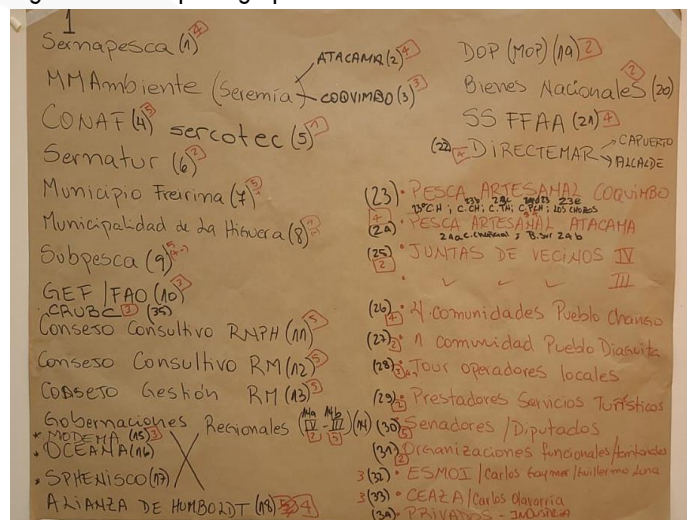 1
Sernapesca (1) 4
MMAmbiente (Seremía) ATACAMA (2) 4
COQVIMBO (3) 3
CONAF (4) 5 sercotec (5) 1
Sernatur (6) 2
Municipio Freirina (7) 5
Municipalidad de La Higuera (8)
Subpesca (9) 5
GEF / FAO (10) 3
CRUBC 1 (35)
Consejo Consultivo RNPH (11) 5
Consejo Consultivo RM (12) 5
Consejo Gestión RM (13) 5
Gobernaciones Regionales (14a IV 2 - 14b III 5) (14)
* MODEMA (15) 3
* OCEANA (16)
* SPHENISCO (17)
ALIANZA DE HUMBOLDT (18) 4
DOP (MOP) (19) 2
Bienes Nacionales (20) 2
SS FFAA (21) 4
(22) 4 - DIRECTEMAR CAPUERTO
ALCALDE
(23) • PESCA ARTESANAL COQUIMBO
23a C.H ; 23b C.CH; 23c C.TH; 23d C.PCH; 23e LOS CHOROS
(24) 4 • PESCA ARTESANAL ATACAMA
24a C. ; B. Sur 24b
(25) 2 • JUNTAS DE VECINOS IV
III
(26) 4 • 4 comunidades Pueblo Chango
(27) 2 • 1 comunidad Pueblo Diaguita
(28) 3 • Tour operadores locales
(29) 2 • Prestadores Servicios Turísticos
(30) • Senadores / Diputados
(31) 2 Organizaciones funcionales / territoriales
3 (32) • ESMOI / Carlos Gaymer / Guillermo Luna
3 (33) • CEAZA / Carlos Olavarria
(34) • PRIVADOS - INDUSTRIA